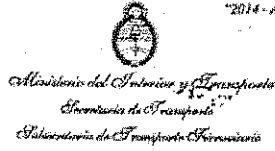 "2014 - A
Ministerio del Interior y Transporte
Secretaría de Transporte
Subsecretaría de Transporte Ferroviario